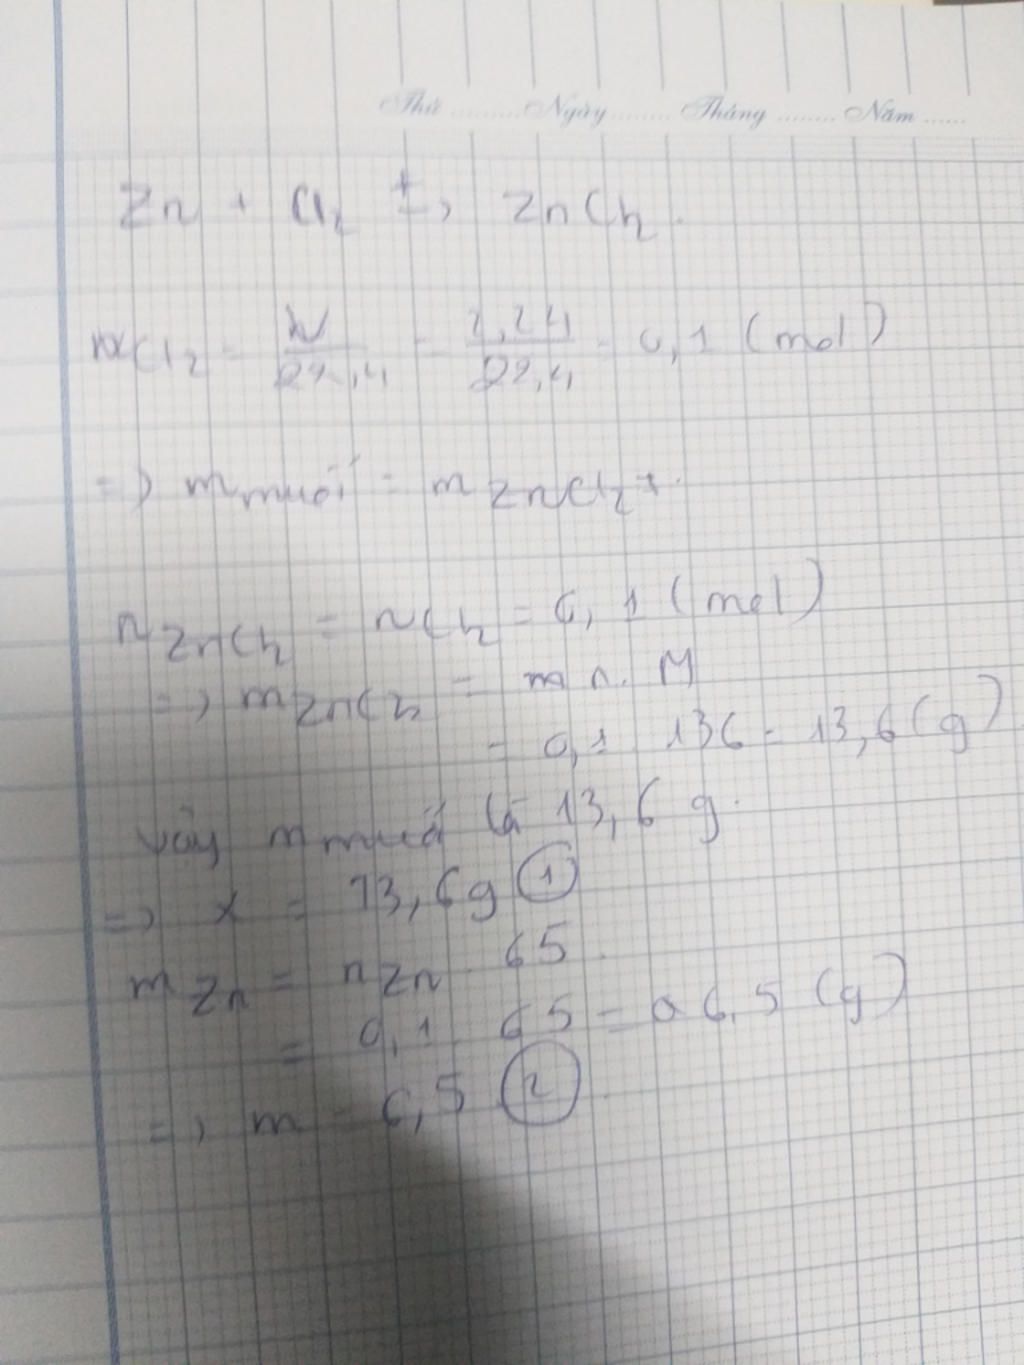 Thứ ......... Ngày ........ Tháng ........ Năm ......
Zn + Cl2 t→ ZnCl2.
nCl2 = V/22,4 = 2,24/22,4 = 0,1 (mol)
=> m muối = m ZnCl2 +.
nZnCl2 = nCl2 = 0,1 (mol)
=> mZnCl2 = m n. M
= 0,1 136 = 13,6 (g)
Vậy m muối là 13,6 g.
=> x = 13,6g (1)
mZn = nZn. 65
= 0,1. 65 = 0 6,5 (g)
=> m = 6,5 (2)